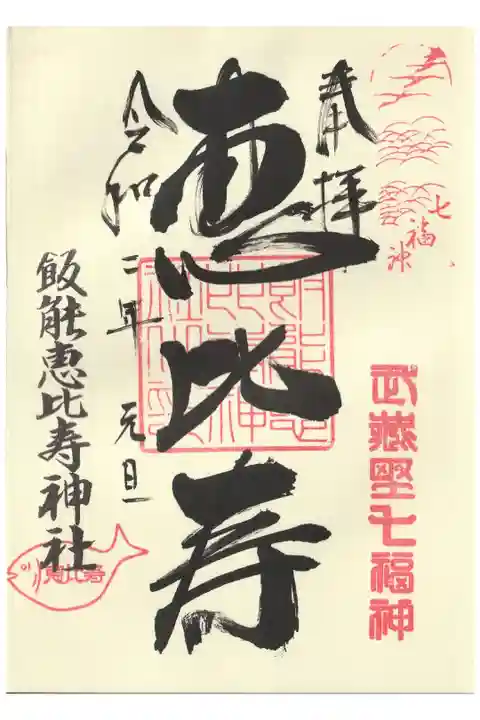 七福神
武蔵野七福神
奉拝
恵比寿
令和二年元旦
飯能恵比寿神社
恵比寿